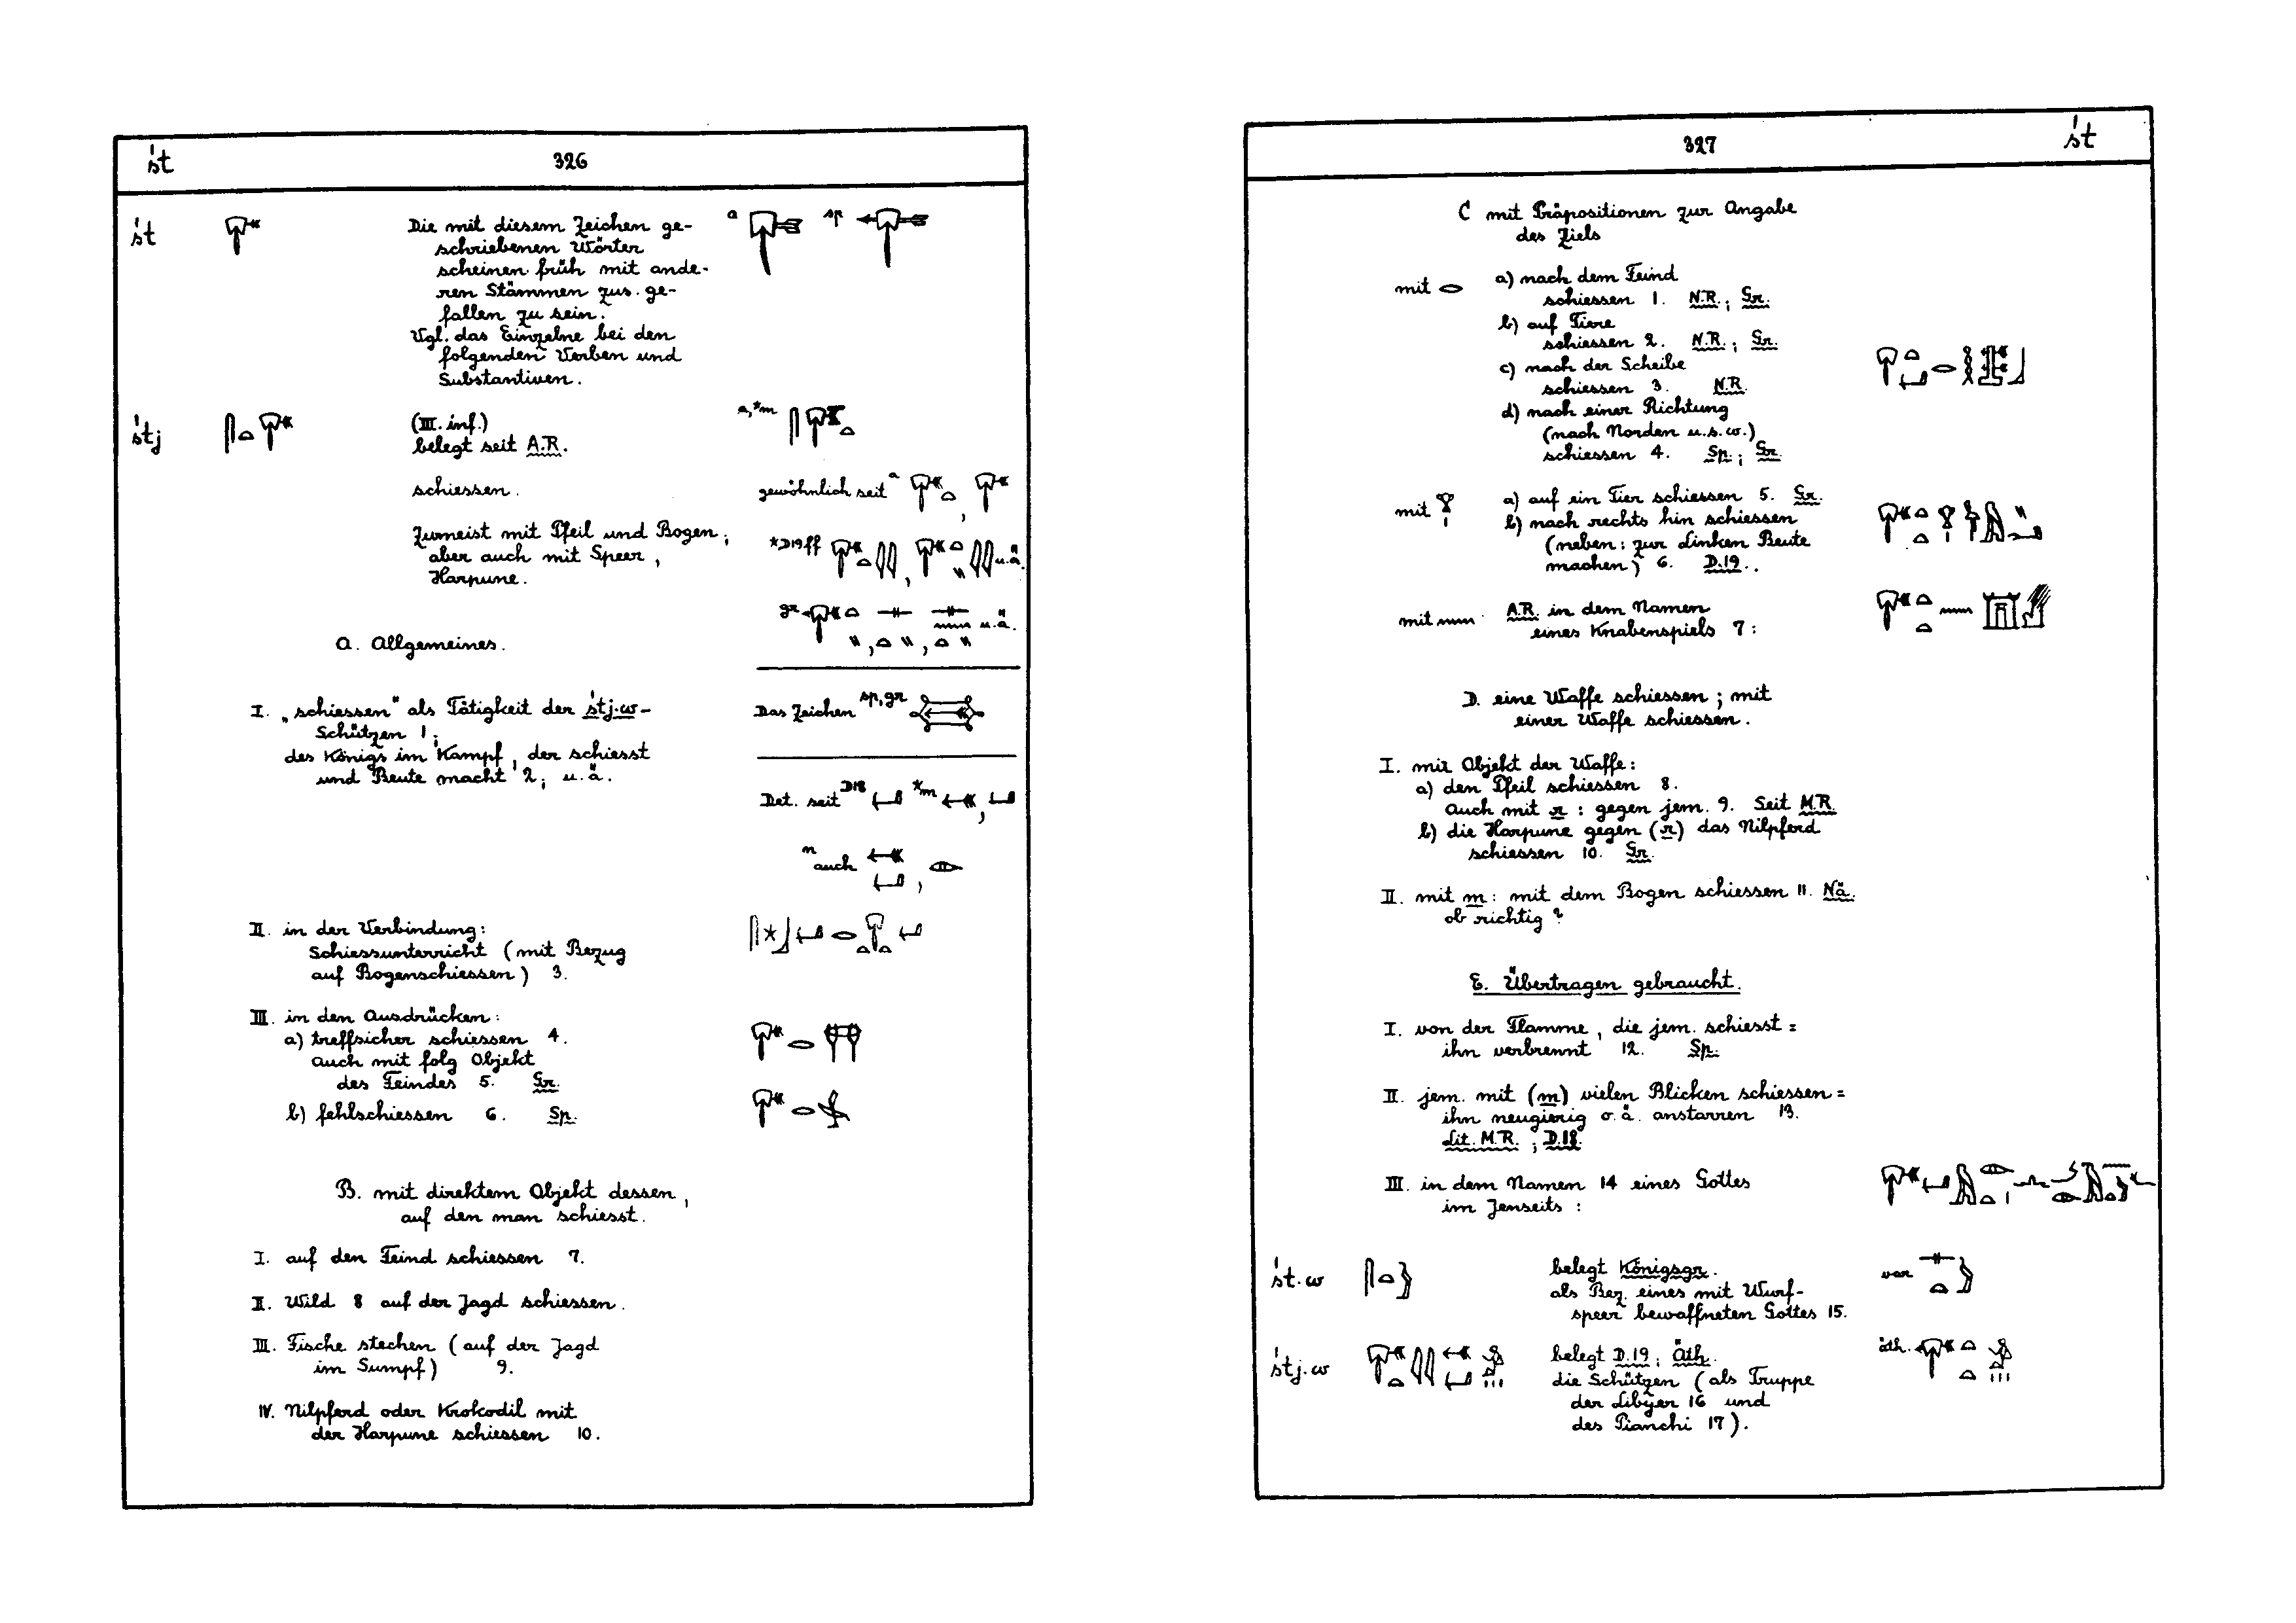 śt 326
śt
Die mit diesem Zeichen ge-
schriebenen Wörter
scheinen früh mit ande-
ren Stämmen zus. ge-
fallen zu sein.
Vgl. das Einzelne bei den
folgenden Verben und
Substantiven.
a sp
śtj
(III. inf.)
belegt seit A.R.
a, *m
schiessen.
gewöhnlich seit a
Zumeist mit Pfeil und Bogen;
aber auch mit Speer,
Harpune.
*D19ff u.ä.
gr u.ä.
A. Allgemeines.
I. „schiessen" als Tätigkeit der śtj.w-
Schützen 1;
des Königs im Kampf, der schiesst
und Beute macht 2; u.ä.
Das Zeichen sp, gr
Det. seit D18 *m
n auch
II. in der Verbindung:
Schiessunterricht (mit Bezug
auf Bogenschiessen) 3.
III. in den Ausdrücken:
a) treffsicher schiessen 4.
Auch mit folg Objekt
des Feindes 5. Gr.
b) fehlschiessen 6. Sp.
B. mit direktem Objekt dessen,
auf den man schiesst.
I. auf den Feind schiessen 7.
II. Wild 8 auf der Jagd schiessen.
III. Fische stechen (auf der Jagd
im Sumpf) 9.
IV. Nilpferd oder Krokodil mit
der Harpune schiessen 10.
327 śt
C mit Präpositionen zur Angabe
des Ziels
mit
a) nach dem Feind
schiessen 1. N.R.; Gr.
b) auf Tiere
schiessen 2. N.R.; Gr.
c) nach der Scheibe
schiessen 3. N.R.
d) nach einer Richtung
(nach Norden u.s.w.)
schiessen 4. Sp.; Gr.
mit
a) auf ein Tier schiessen 5. Gr.
b) nach rechts hin schiessen
(neben: zur Linken Beute
machen) 6. D.19..
mit
A.R. in dem Namen
eines Knabenspiels 7:
D. eine Waffe schiessen; mit
einer Waffe schiessen.
I. mit Objekt der Waffe:
a) den Pfeil schiessen 8.
Auch mit r: gegen jem. 9. Seit M.R.
b) die Harpune gegen (r) das Nilpferd
schiessen 10. Gr.
II. mit m: mit dem Bogen schiessen 11. Nä.
ob richtig?
E. Übertragen gebraucht.
I. von der Flamme, die jem. schiesst =
ihn verbrennt 12. Sp.
II. jem. mit (m) vielen Blicken schiessen =
ihn neugierig o.ä. anstarren 13.
Lit. M.R.; D.18.
III. in dem Namen 14 eines Gottes
im Jenseits:
śt.w
belegt Königsgr.
als Bez. eines mit Wurf-
speer bewaffneten Gottes 15.
var
śtj.w
belegt D.19; Äth.
die Schützen (als Truppe
der Libyer 16 und
des Pianchi 17).
äth.